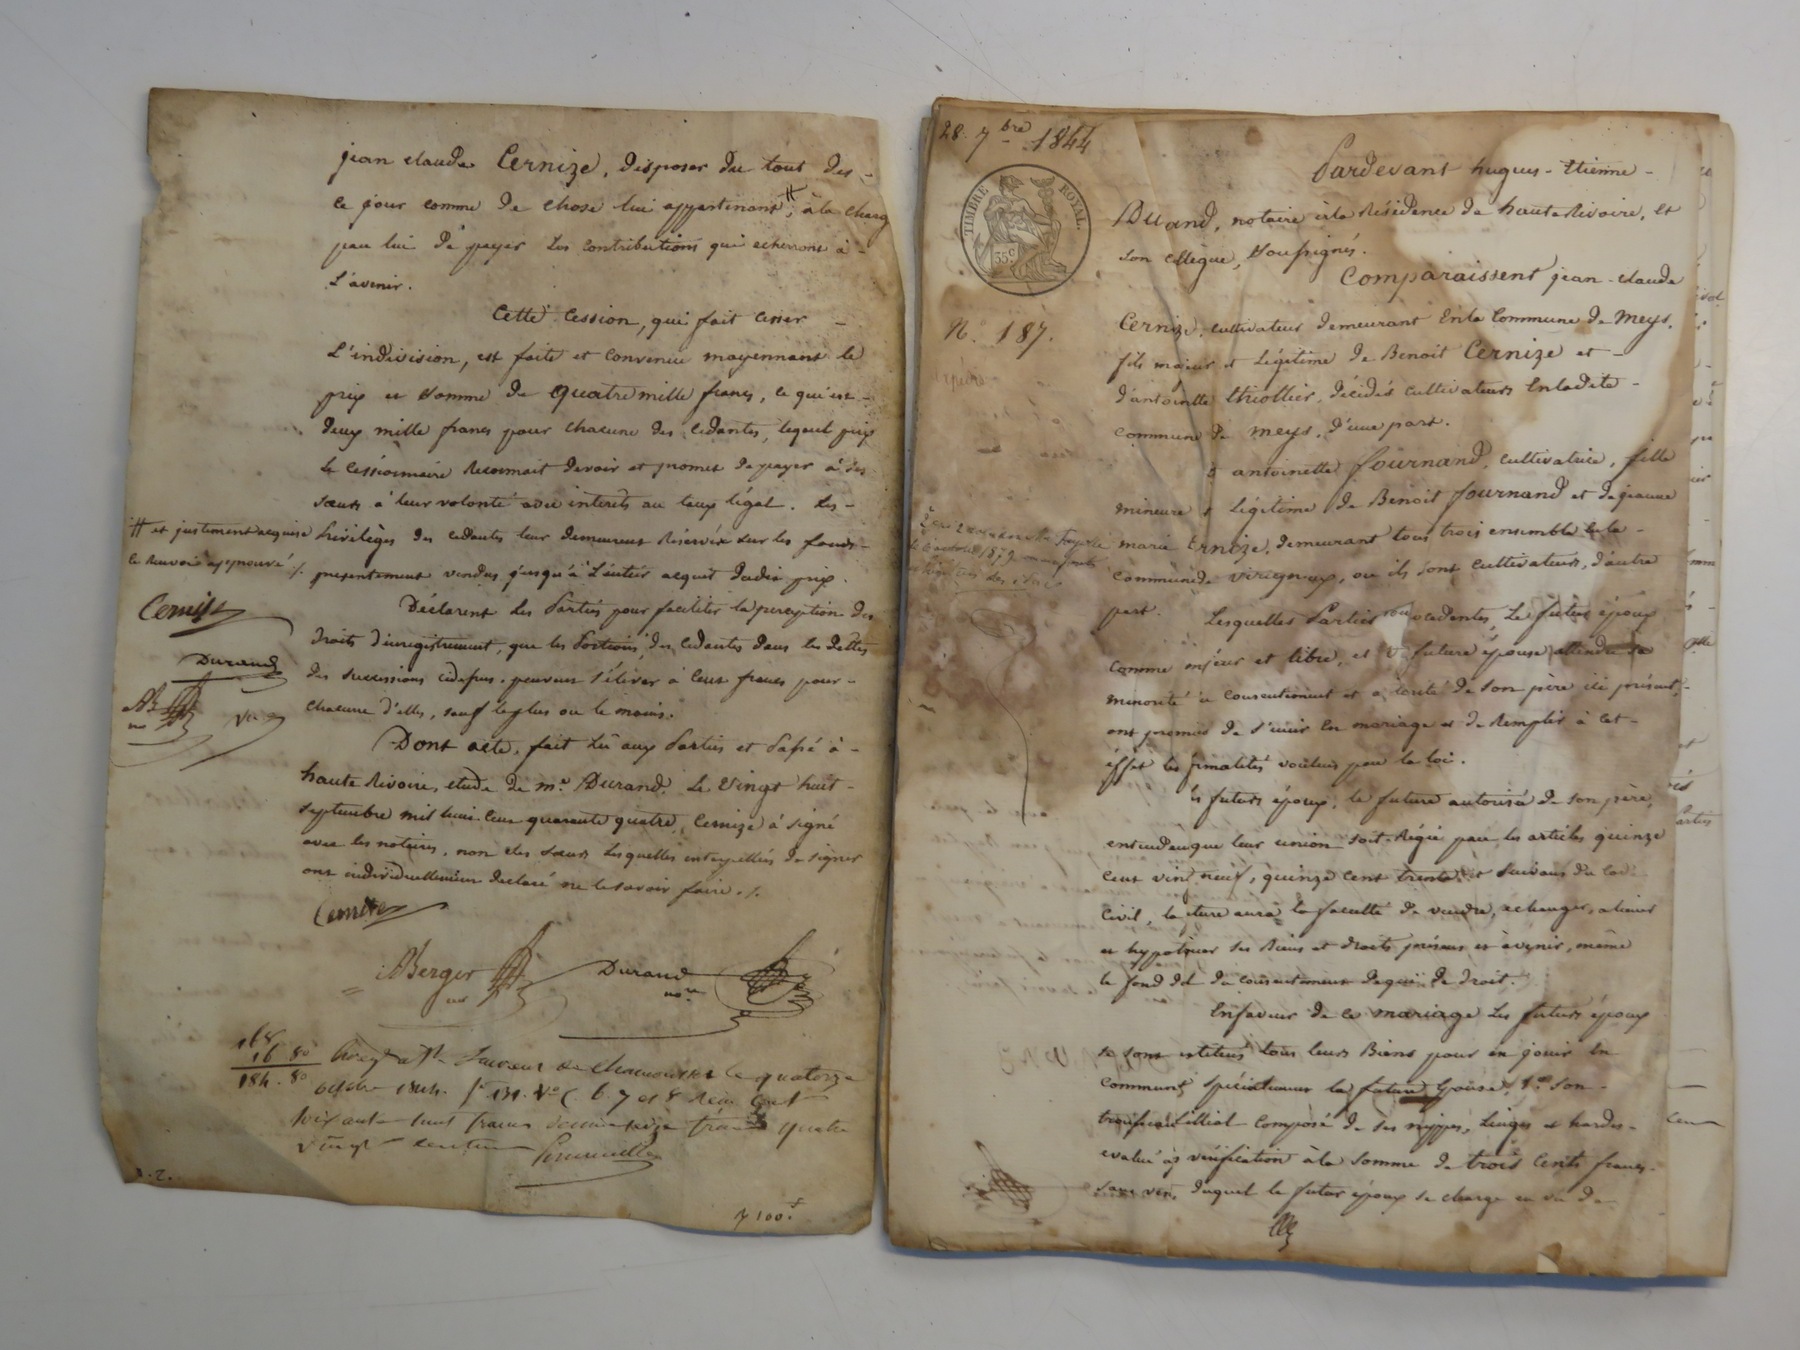 jean claude Cernize, disposer du tout des-
ce jour comme de chose lui appartenant, # à la charge
par lui de payer les contributions qui echerront à-
l'avenir.
Cette Cession, qui fait cesser-
l'indivision, est faite et convenue moyennant le
prix et somme de quatre mille francs, ce qui est-
deux mille francs pour chacune des cedantes, lequel prix
le cessionnaire reconnait devoir et promet de payer à ses
sœurs à leur volonté avec interets au taux légal. Les-
privilèges des cedantes leur demeurent réservés sur les fonds-
presentement vendus jusqu'à l'entier acquit dudit prix.
Déclarent les Parties pour faciliter la perception des
droits d'enregistrement, que les Portions des cedantes dans les dettes
des successions peuvent s'élever à cent francs pour-
chacune d'elles, sauf le plus ou le moins.
Dont acte, fait lu aux Parties et Passé à-
haute Rivoire, etude de me. Durand. Le vingt huit-
septembre mil huit cent quarante quatre, Cernize à signé
avec les notaires, non les sœurs lesquelles interpellées de signer
ont individuellement declaré ne le savoir faire ./.
# et justement acquise
le renvoi approuvé ./.
Cernize
Durand
Cernize
Berger
Durand
nore
168
16 80
184.80
à St Laurent de Chamousset le quatorze
octobre f° 131. V° C 6. 7 et 8 Reçu Cent
soixante huit francs seize francs quatre
vingt centimes
7 100.f
28. 7bre 1844
TIMBRE ROYAL.
35 c
N°. 187.
Pardevant hugues-Etienne-
Durand, notaire à la Résidence de hauterivoire, et
son collègue, soussignés.
Comparaissent jean-claude
Cernize, cultivateur demeurant en la Commune de Meys,
fils majeur et légitime de Benoit Cernize et-
d'antoinette thiollier, décédés cultivateurs en ladite-
commune de meys, d'une part.
& antoinette fournand, cultivatrice, fille
mineure & légitime de Benoit fournand et de jeanne
marie Ernize, demeurant tous trois ensemble en la-
commune de virigneux, ou ils sont cultivateurs, d'autre
part.
Lesquelles Parties procedentes, le futur époux
comme majeur et libre, et la future épouse attendu sa
minorité du consentement et autorité de son père ici présent,-
ont promis de s'unir en mariage et de remplir à cet-
effet les formalités voulues par la loi.
les futurs époux, la future autorisée de son père,
entendent que leur union soit régie par les articles quinze
cent vingt neuf, quinze cent trente et suivans du code
Civil, la future aura la faculté de vendre, echanger, aliener
et hypotéquer ses Biens et droits présens et àvenir, même
le fond dotal du consentement de qui de droit.
En faveur de ce mariage les futurs époux
se sont constitués tous leurs Biens pour en jouir en
commun, spécialement la future épouse, 1°. son-
trousseau filial composé de ses nippes, linges et hardes-
evalué après vérification à la somme de trois cents francs-
sans vente, duquel le futur époux se charge en vu de-